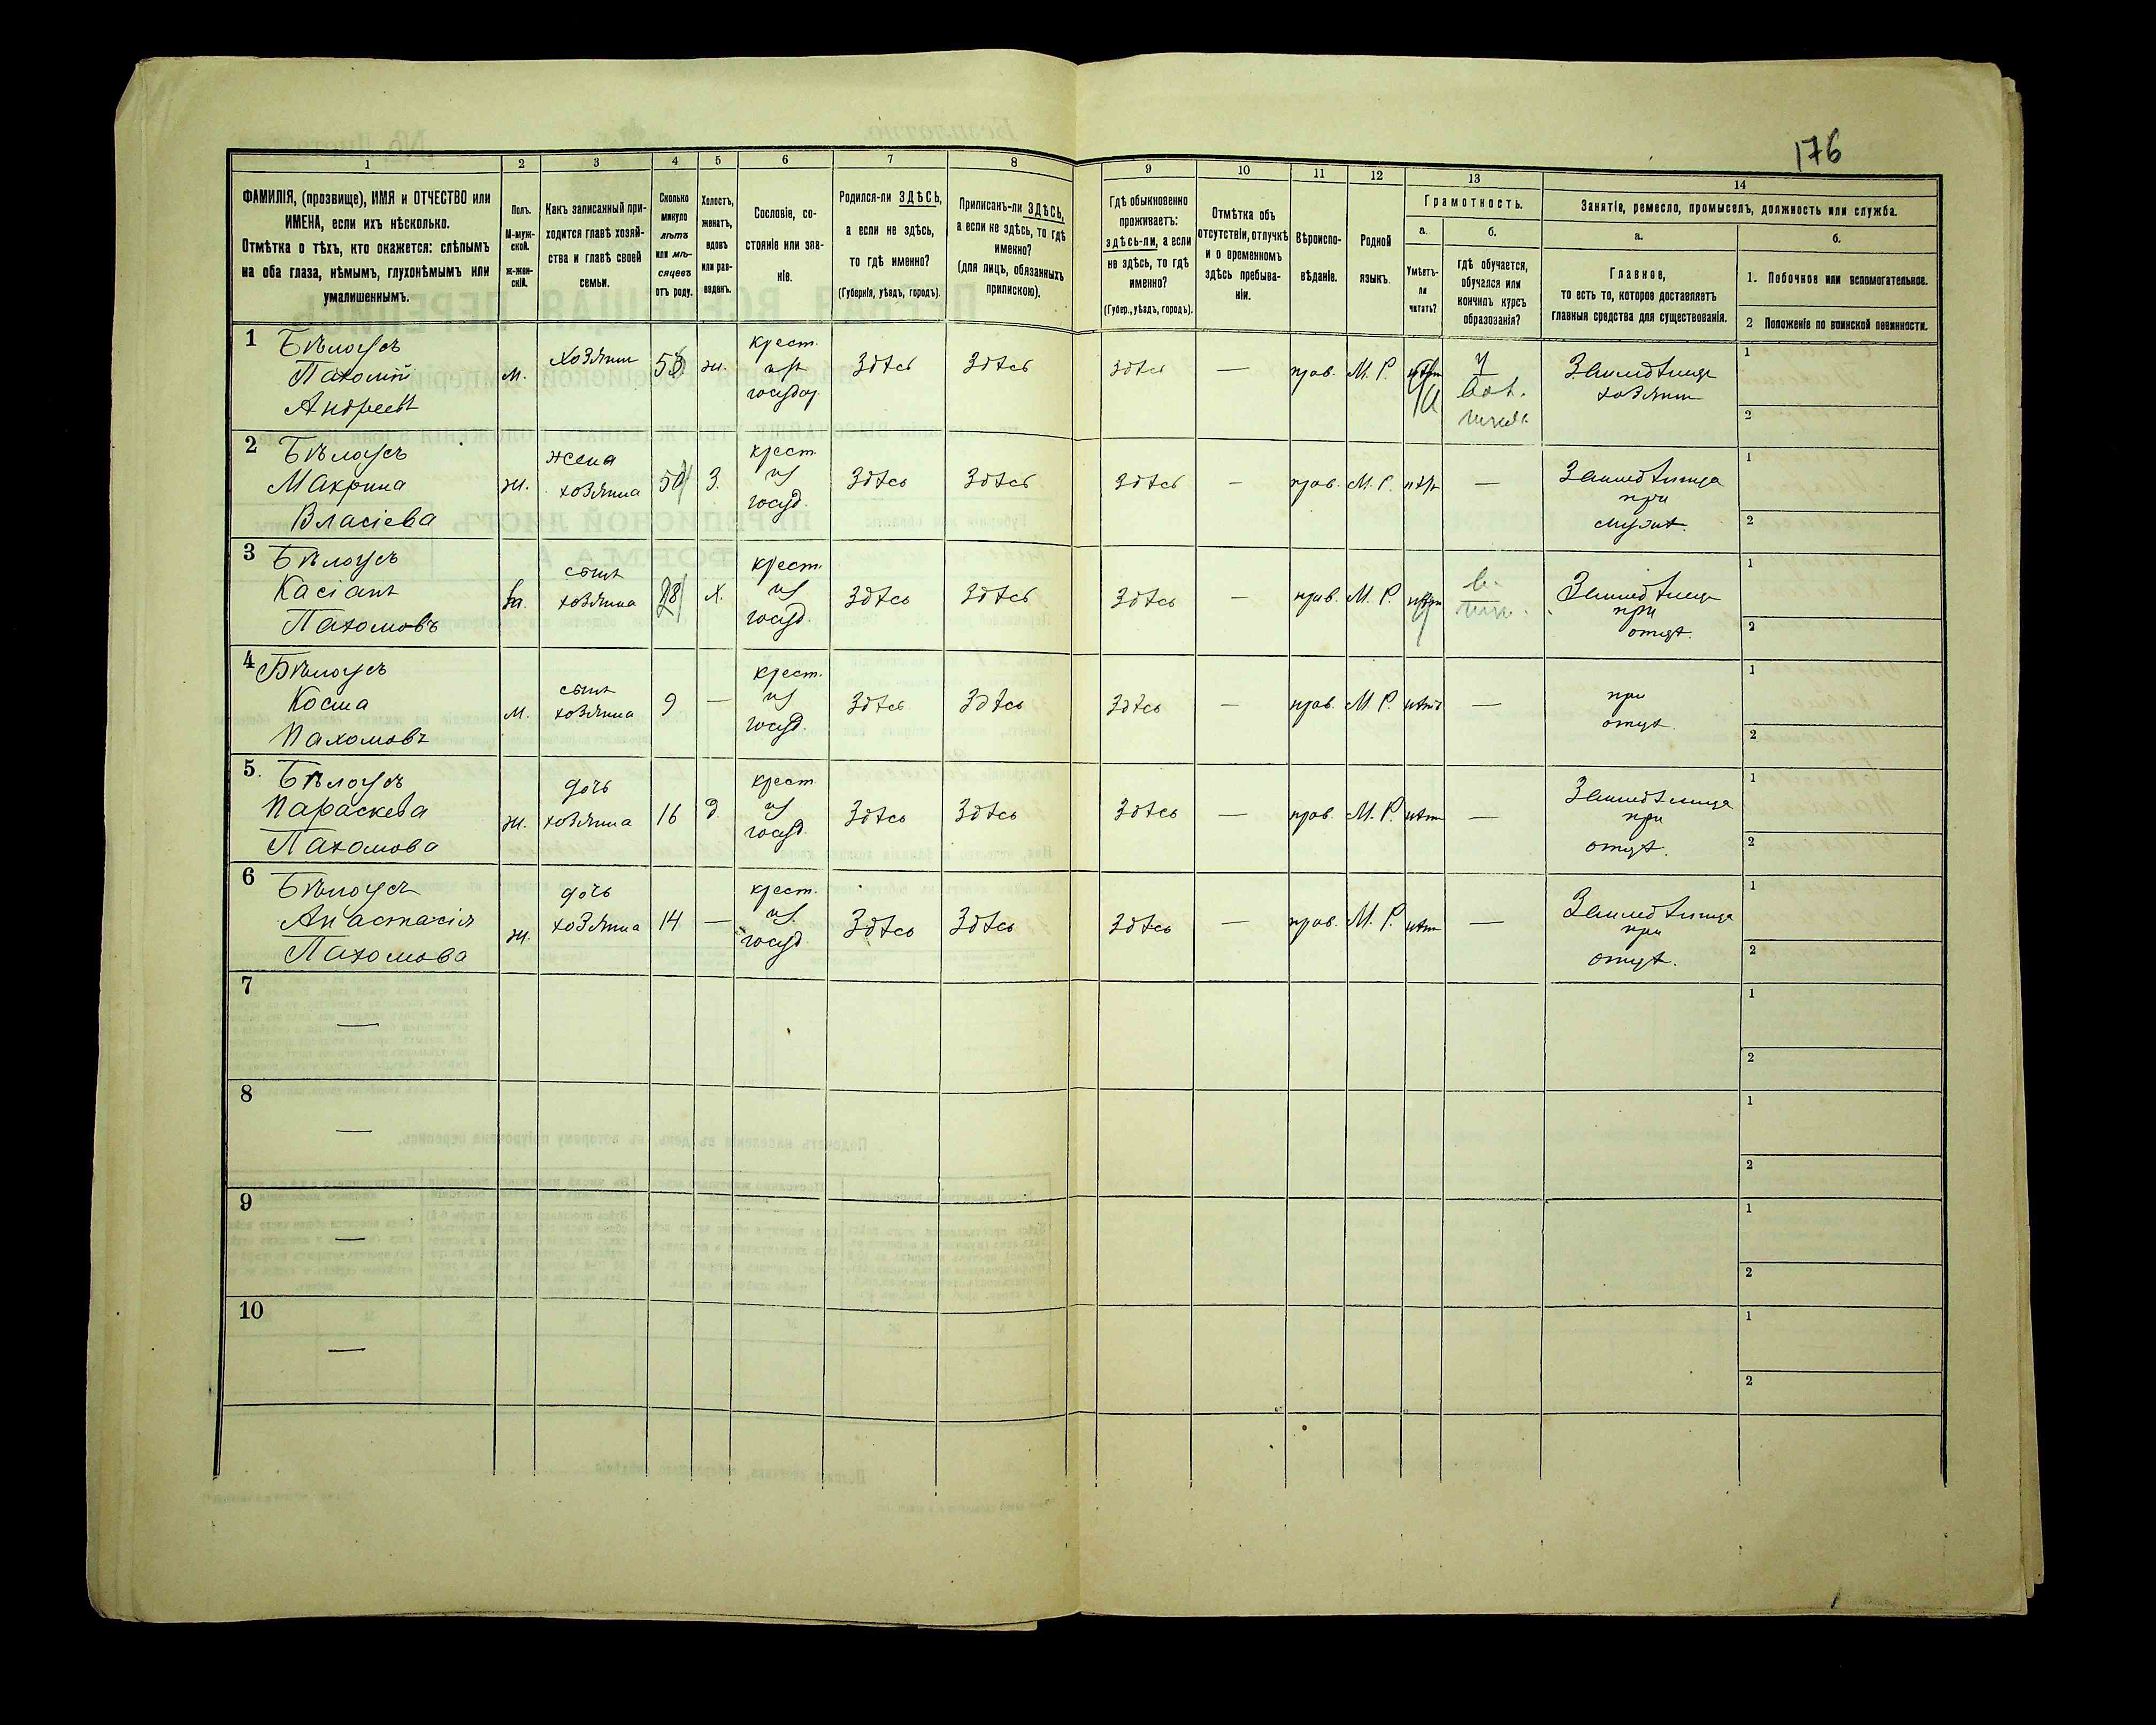 176
1
2
3
4
5
6
7
8
9
10
11
12
13
14
ФАМИЛІЯ, (прозвище), ИМЯ и ОТЧЕСТВО или
ИМЕНА, если ихъ нѣсколько.
Отмѣтка о тѣхъ, кто окажется: слѣпымъ
на оба глаза, нѣмымъ, глухонѣмымъ или
умалишеннымъ.
Полъ.
М-муж-
ской.
ж-жен-
скій.
Какъ записанный при-
ходится главѣ хозяй-
ства и главѣ своей
семьи.
Сколько
минуло
лѣтъ
или мѣ-
сяцевъ
отъ роду.
Холостъ,
женатъ,
вдовъ
или раз-
веденъ.
Сословіе, со-
стояніе или зва-
ніе.
Родился-ли ЗДѢСЬ,
а если не здѣсь,
то гдѣ именно?
(Губернія, уѣздъ, городъ).
Приписанъ-ли ЗДѢСЬ,
а если не здѣсь, то гдѣ
именно?
(для лицъ, обязанныхъ
припискою).
Гдѣ обыкновенно
проживаетъ:
здѣсь-ли, а если
не здѣсь, то гдѣ
именно?
(Губер., уѣздъ, городъ).
Отмѣтка объ
отсутствіи, отлучкѣ
и о временномъ
здѣсь пребыва-
ніи.
Вѣроиспо-
вѣданіе.
Родной
языкъ.
Грамотность.
а.
Умѣетъ-
ли
читать?
б.
гдѣ обучается,
обучался или
кончилъ курсъ
образованія?
Занятіе, ремесло, промыселъ, должность или служба.
а.
Главное,
то есть то, которое доставляетъ
главныя средства для существованія.
б.
1. Побочное или вспомогательное.
2 Положеніе по воинской повинности.
1
Бѣлоусъ
Пахомій
Андреевъ
м.
хозяинъ
ж.
крест.
изъ
госуд.
здѣсь
здѣсь
здѣсь
—
прав.
М. Р.
Земледѣлецъ
хозяинъ
1
2
2
Бѣлоусъ
Макрина
Власіева
ж.
жена
хозяина
50
З.
крест.
из
госуд.
здѣсь
здѣсь
здѣсь
—
прав.
М. Р.
нѣтъ
—
Земледѣлица
при
мужѣ.
1
2
3
Бѣлоусъ
Касіанъ
Пахомовъ
сынъ
хозяина
28
х.
крест.
из
госуд.
здѣсь
здѣсь
здѣсь
—
прав.
М. Р.
Земледѣлецъ
при
отцѣ.
1
2
4
Бѣлоусъ
Косма
Пахомовъ
м.
сынъ
хозяина
9
—
крест.
из
госуд.
здѣсь
здѣсь
здѣсь
—
прав.
М. Р.
нѣтъ
—
при
отцѣ.
1
2
5.
Бѣлоусъ
Параскева
Пахомова
ж.
дочь
хозяина
16
д.
крест.
из
госуд.
здѣсь
здѣсь
здѣсь
—
прав.
М. Р.
нѣт
—
Земледѣлица
при
отцѣ.
1
2
6
Бѣлоусъ
Анастасія
Пахомова
ж.
дочь
хозяина
14
—
крест.
из
госуд.
здѣсь
здѣсь
здѣсь
—
прав.
М. Р.
нѣт
—
Земледѣлица
при
отцѣ.
1
2
7
—
1
2
8
—
1
2
9
—
1
2
10
—
1
2